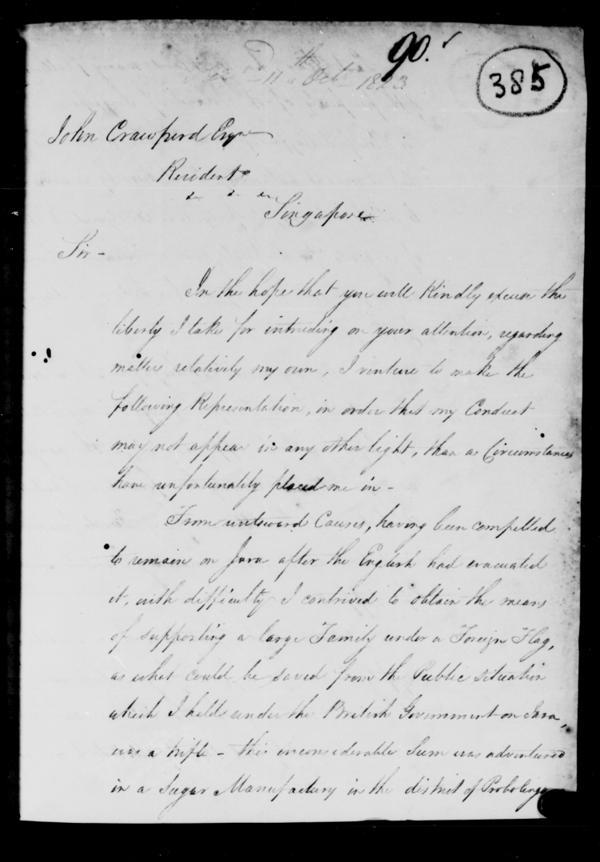 90.
385
11th Octr 1823
John Crawfurd Esqre
Resident
Singapore
Sir -
In the hope that you will Kindly excuse the
liberty I take for intruding on your attention, regarding
matters relatively my own, I venture to make the
following Representation, in order that my Conduct
may not appear in any other light, than as Circumstances
have unfortunately placed me in -
From untoward Causes, having been compelled
to remain on Java after the English had evacuated
it, with difficulty I contrived to obtain the means
of supporting a large Family under a Foreign Flag,
as what could be saved from the Public situation
which I held under the British Government on Java,
was a trifle - this inconsiderable Sum was adventured
in a Sugar Manufactory in the district of Probolingo